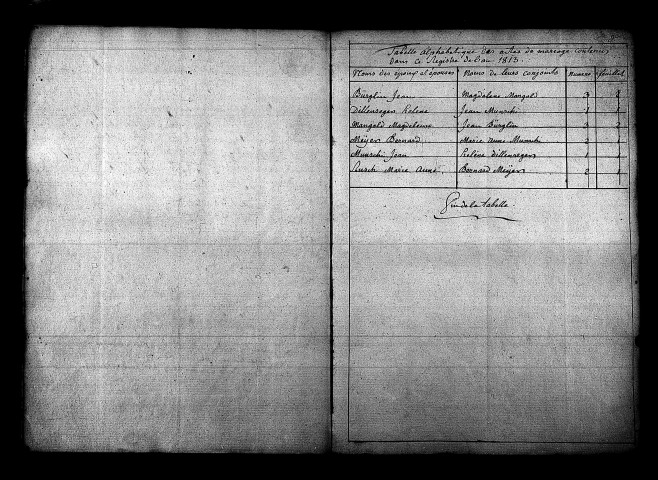 Tabelle alphabetique des actes de mariage contenus
dans ce Registre de l'an 1813.
Noms des époux et épouses Noms de leurs conjoints Numero feuillet
Bürglin Jean Magdelene Mangold 3 2
Dillenseger Helene Jean Munschi 1 1
Mangold Magdelene Jean Bürglin 3 2
Meÿer Bernard Marie Anne 2 1
Munschi Jean Helene Dillenseger 1 1
Marie Anne Bernard Meÿer 2 1
Fin de la tabelle.